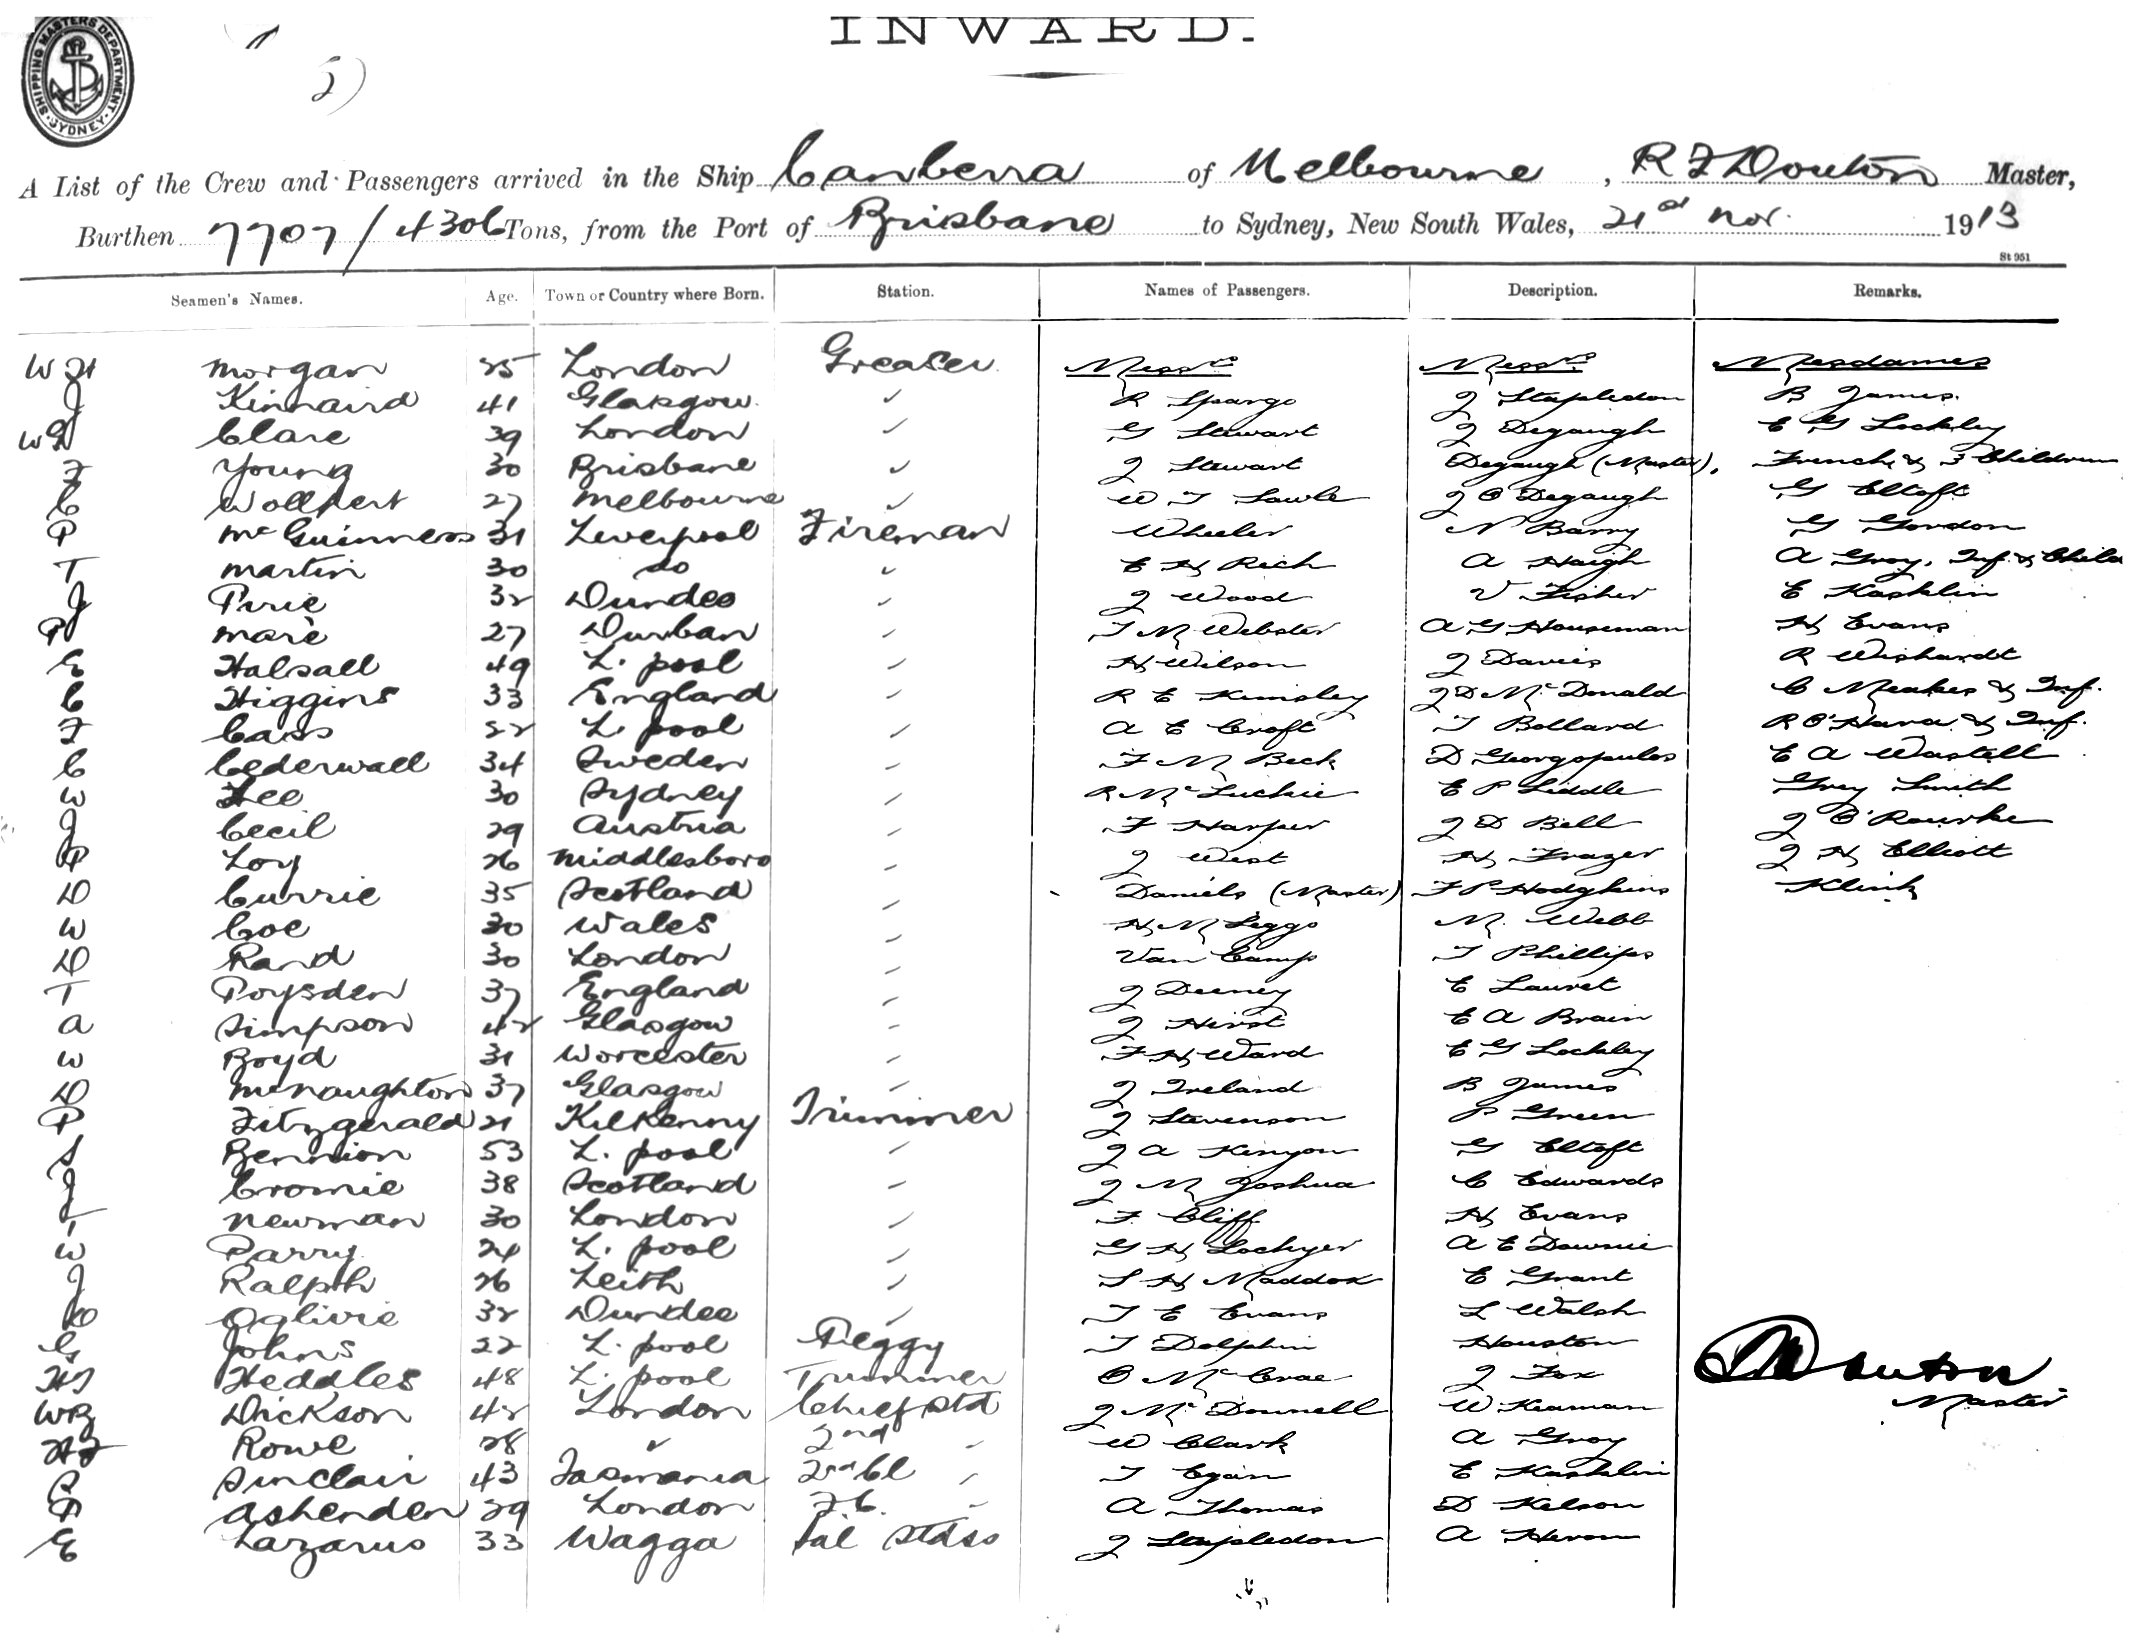 INWARD.
SHIPPING MASTERS DEPARTMENT SYDNEY
A List of the Crew and Passengers arrived in the Ship Canberra of Melbourne, R F Douton Master,
Burthen 7707/4306 Tons, from the Port of Brisbane to Sydney, New South Wales, 21st Nov. 1913
St 951
Seamen's Names. Age. Town or Country where Born. Station. Names of Passengers. Description. Remarks.
W H Morgan 25 London Greaser Messrs Messrs Mesdames
J Kinnaird 41 Glasgow ✓ R Spargo J Stapledon B James.
W G Clare 39 London ✓ G Stewart J Degaugh E G Lockley
F Young 30 Brisbane ✓ J Stewart Degaugh (Master). French & 3 Children
C Wollpert 27 Melbourne ✓ W T Sawle J O Degaugh G Eltoft
P McGuinness 31 Liverpool Fireman Wheeler N Barry G Gordon
T Martin 30 do ✓ E H Rich A Haigh A Groy, Inf & Child
J Pirie 32 Dundee ✓ J Wood V Fisher E Kashklin
P Mare 27 Durban ✓ T M Webster A G Houseman H Evans
E Halsall 49 L. pool ✓ H Wilson J Davies R Wishardt
C Higgins 33 England ✓ R E Kemsley J D McDonald C Meakes & Inf.
F Cass 22 L. pool ✓ A E Croft T Bollard R O'Hara & Inf.
C Cederwall 34 Sweden ✓ F M Beck D Georgopoulos E A Wastell
W Fee 30 Sydney ✓ R McLuckie E P Liddle Grey Smith
J Cecil 29 Austria ✓ F Harper J D Bell J O'Rourke
P Loy 26 Middlesboro ✓ J West H Frazer J H Elliott
D Currie 35 Scotland ✓ Daniels (Master) F P Hodgkins Klink
W Coe 30 Wales ✓ H M Leggo M. Webb
D Rand 30 London ✓ Van Camp T Phillips
T Poysden 37 England ✓ J Deeney E Lauret
A Simpson 42 Glasgow ✓ J Hirst E A Brain
W Boyd 31 Worcester ✓ F H Ward E G Lockley
D McNaughton 37 Glasgow ✓ J Ireland B James
P Fitzgerald 21 Kilkenny Trimmer J Stevenson P Green
S Bennion 53 L. pool ✓ J A Kenyon G Eltoft
J Cromie 38 Scotland ✓ J M Joshua C Edwards
T Newman 30 London ✓ F. Cliff H Evans
W Parry 24 L. pool ✓ G H Lockyer A E Downie
J Ralph 26 Leith ✓ S H Maddox E Grant
Oglivie 32 Dundee ✓ T E Evans L Walsh
G Johns 22 L. pool Peggy T Dolphin Houston
Heddles 48 L. pool Trimmer O McCrae J Fox
W B Dickson 42 London Chief Std J McDonnell W Keaman
Rowe 28 ✓ 2nd ✓ W Clark A Groy
Sinclair 43 Tasmania 2nd Cl ✓ T Egan E Kashklin
P Ashenden 29 London F C. ✓ A Thomas D Kelson
E Lazarus 33 Wagga Sal Stdss J Stapledon A Heron
Douton
Master